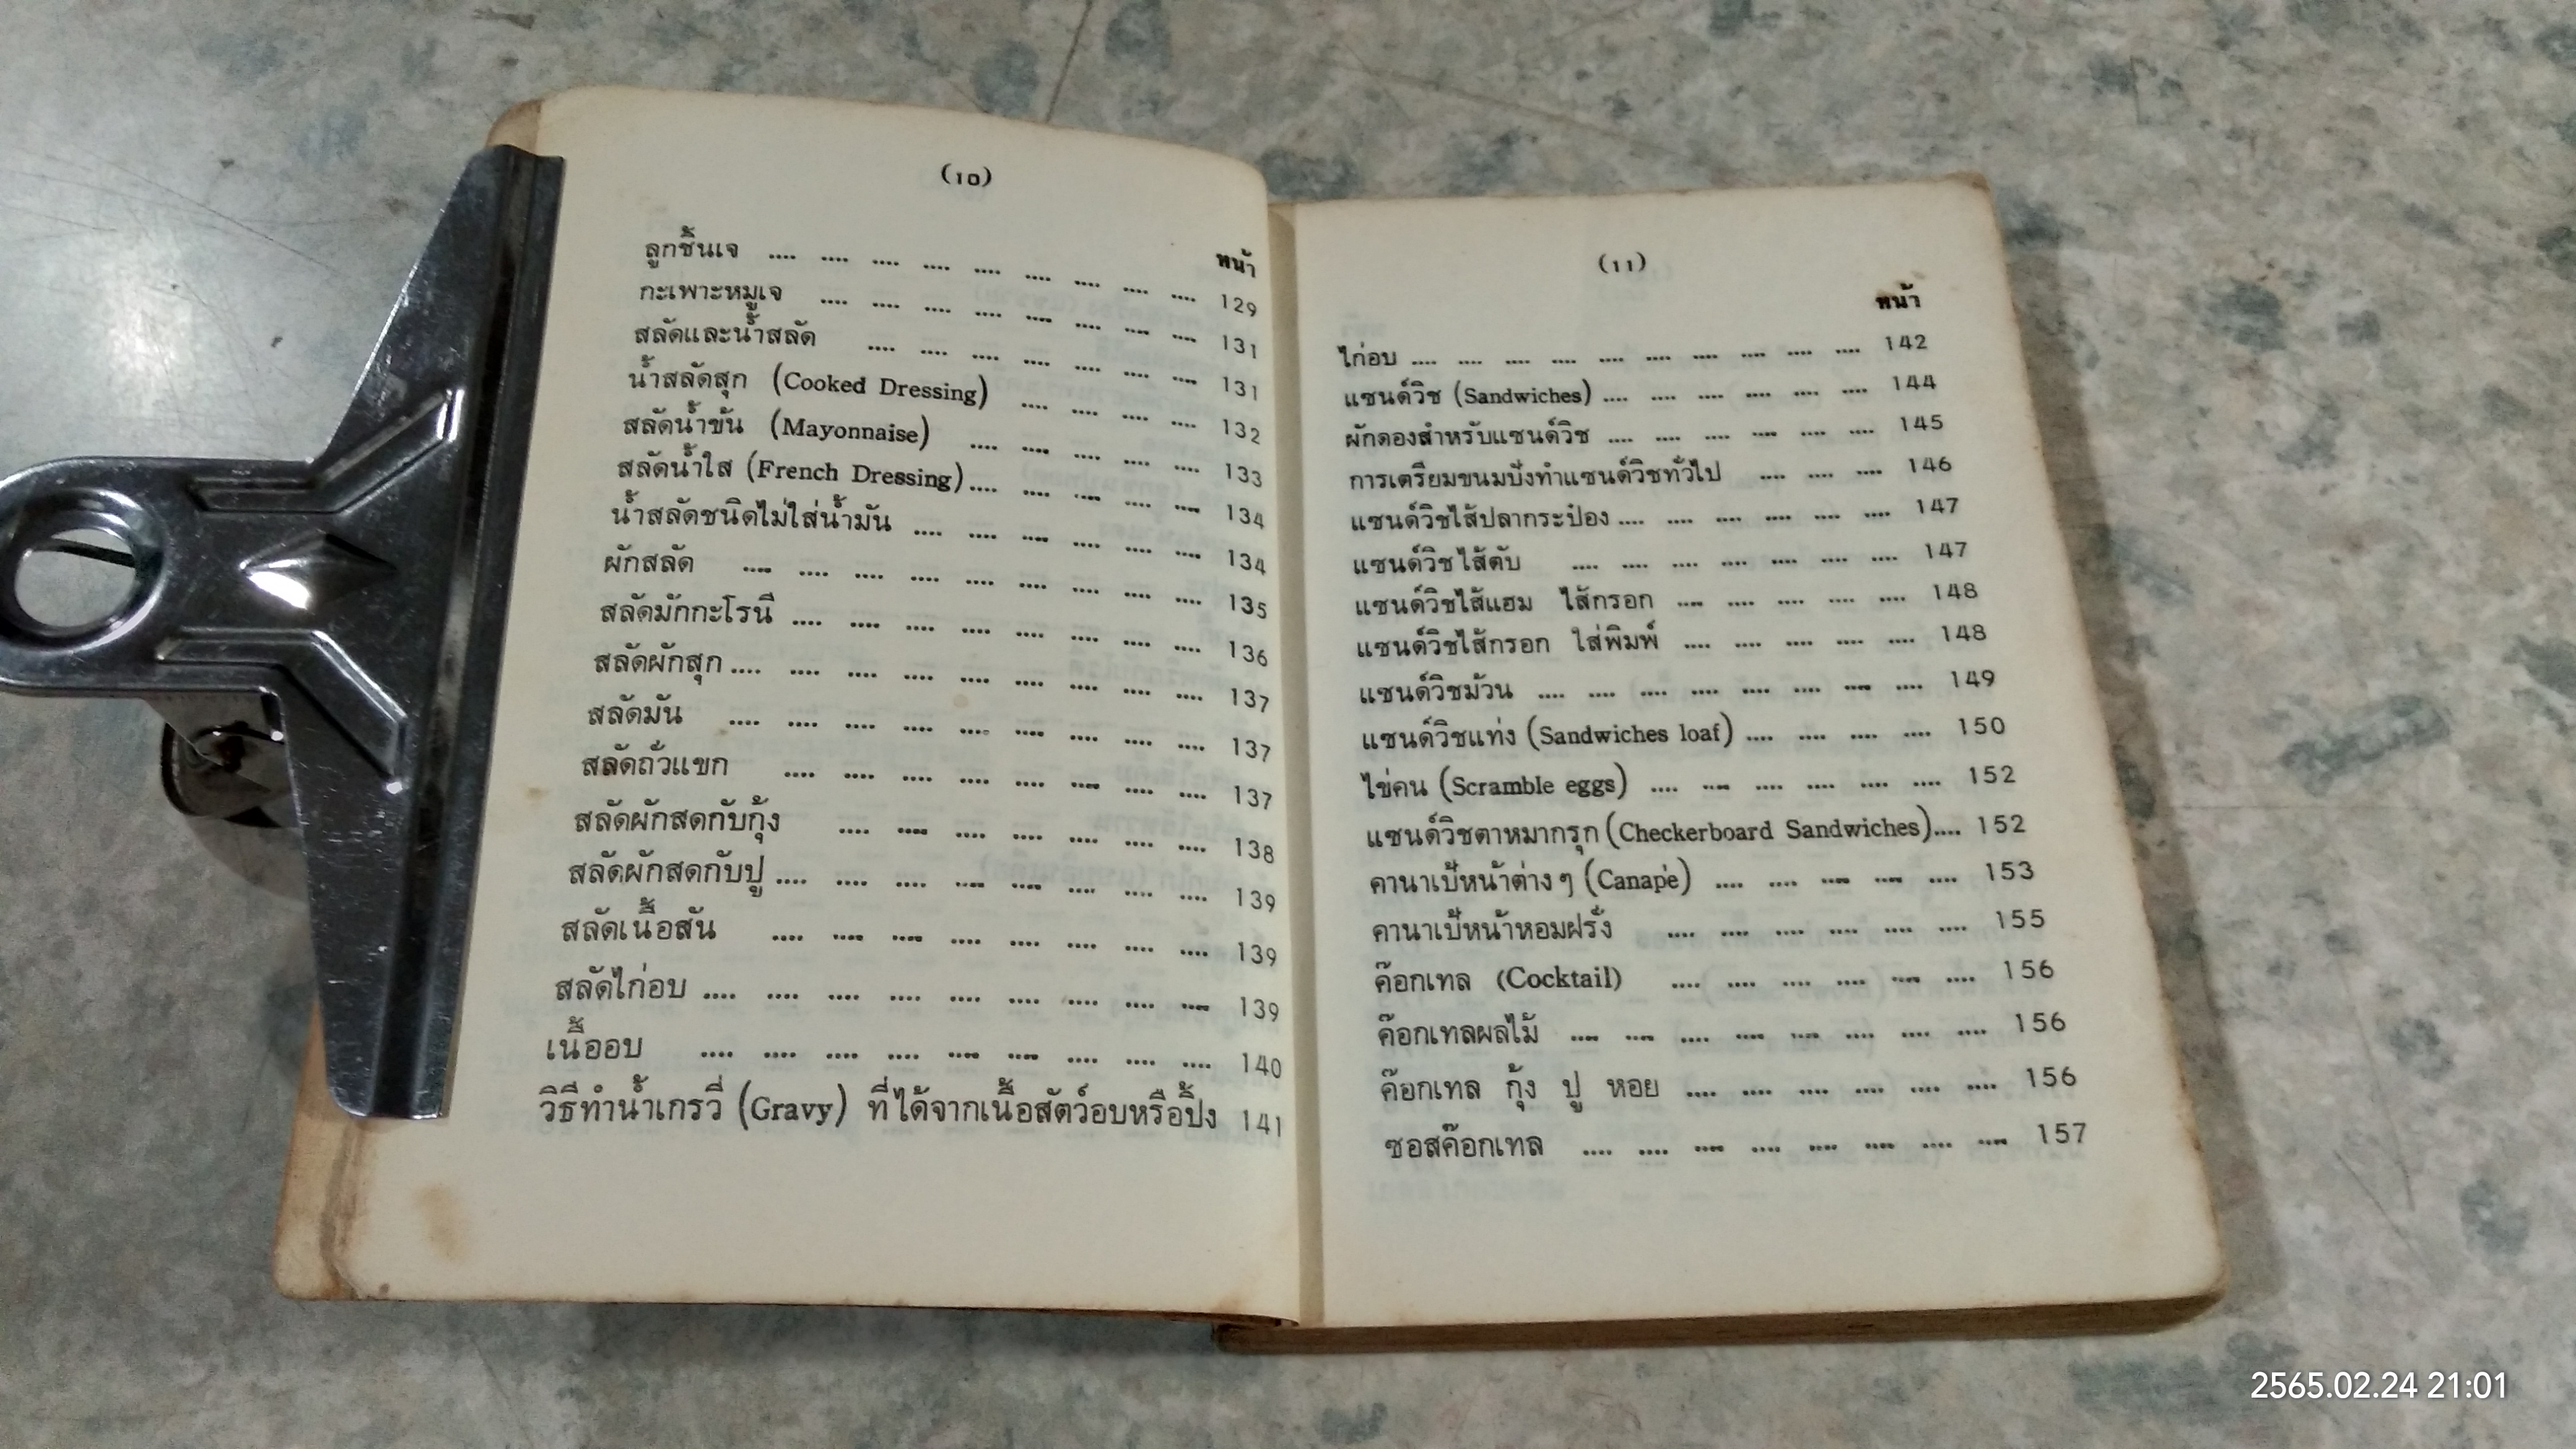 (10)
หน้า
ลูกชิ้นเจ .... .... .... .... .... .... .... .... .... 129
กะเพาะหมูเจ .... .... .... .... .... .... .... .... 131
สลัดและน้ำสลัด .... .... .... .... .... .... .... 131
น้ำสลัดสุก (Cooked Dressing) .... .... .... .... 132
สลัดน้ำข้น (Mayonnaise) .... .... .... .... .... 133
สลัดน้ำใส (French Dressing).... .... .... .... .... 134
น้ำสลัดชนิดไม่ใส่น้ำมัน .... .... .... .... .... .... 134
ผักสลัด .... .... .... .... .... .... .... .... .... 135
สลัดมักกะโรนี .... .... .... .... .... .... .... .... 136
สลัดผักสุก .... .... .... .... .... .... .... .... .... 137
สลัดมัน .... .... .... .... .... .... .... .... .... 137
สลัดถั่วแขก .... .... .... .... .... .... .... .... 137
สลัดผักสดกับกุ้ง .... .... .... .... .... .... .... 138
สลัดผักสดกับปู .... .... .... .... .... .... .... .... 139
สลัดเนื้อสัน .... .... .... .... .... .... .... .... 139
สลัดไก่อบ .... .... .... .... .... .... .... .... .... 139
เนื้ออบ .... .... .... .... .... .... .... .... .... 140
วิธีทำน้ำเกรวี่ (Gravy) ที่ได้จากเนื้อสัตว์อบหรือปิ้ง 141
(11)
หน้า
ไก่อบ .... .... .... .... .... .... .... .... .... .... 142
แซนด์วิช (Sandwiches) .... .... .... .... .... .... 144
ผักดองสำหรับแซนด์วิช .... .... .... .... .... .... 145
การเตรียมขนมปังทำแซนด์วิชทั่วไป .... .... .... 146
แซนด์วิชไส้ปลากระป๋อง .... .... .... .... .... .... 147
แซนด์วิชไส้ตับ .... .... .... .... .... .... .... 147
แซนด์วิชไส้แฮม ไส้กรอก .... .... .... .... .... 148
แซนด์วิชไส้กรอก ใส่พิมพ์ .... .... .... .... .... 148
แซนด์วิชม้วน .... .... .... .... .... .... .... .... 149
แซนด์วิชแท่ง (Sandwiches loaf) .... .... .... .... 150
ไข่คน (Scramble eggs) .... .... .... .... .... .... 152
แซนด์วิชตาหมากรุก (Checkerboard Sandwiches).... 152
คานาเป้หน้าต่าง ๆ (Canape') .... .... .... .... .... 153
คานาเป้หน้าหอมฝรั่ง .... .... .... .... .... .... 155
ค๊อกเทล (Cocktail) .... .... .... .... .... .... 156
ค๊อกเทลผลไม้ .... .... .... .... .... .... .... .... 156
ค๊อกเทล กุ้ง ปู หอย .... .... .... .... .... .... 156
ซอสค๊อกเทล .... .... .... .... .... .... .... .... 157
2565.02.24 21:01